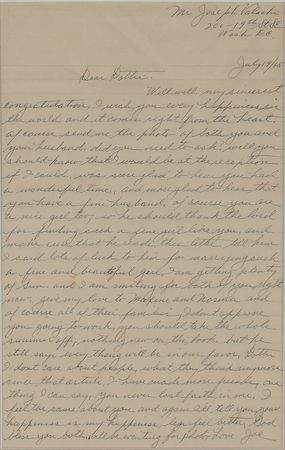 Mr. Joseph Valachi
200-19th St SE
Wash DC
July 19/65
Dear Dottie:
Well well, my sincerest
congratulation, I wish you every happiness in
the world and it comes right from the heart,
of course send me the photo of both you and
your husband, did you need to ask? well you
should know that I would be at the reception
if I could, was sure glad to hear you had
a wonderful time, and more glad to hear that
you have a fine husband, of course you are
a nice girl too, so he should thank the lord
for finding such a fine girl like you, and
make sure that he reads this letter tell him
I said lots of luck to him for marrying such
a fine and beautiful girl, I am getting plenty
of sun and I am smiling for both of you right
now, give my love to Maxine and
of course all of their families, I dont approve
you going to work, you should take the whole
summer off, nothing new on the book but he
still says everything will be in our favor, Dottie
I dont care about people, what they think anymore
since that article I have made more friends, one
thing I can say, you never lost faith in me, I
feel the same about you and again I'll tell you, your
happiness is my happiness feel better, God
bless you both, will be waiting for photo, Love Joe